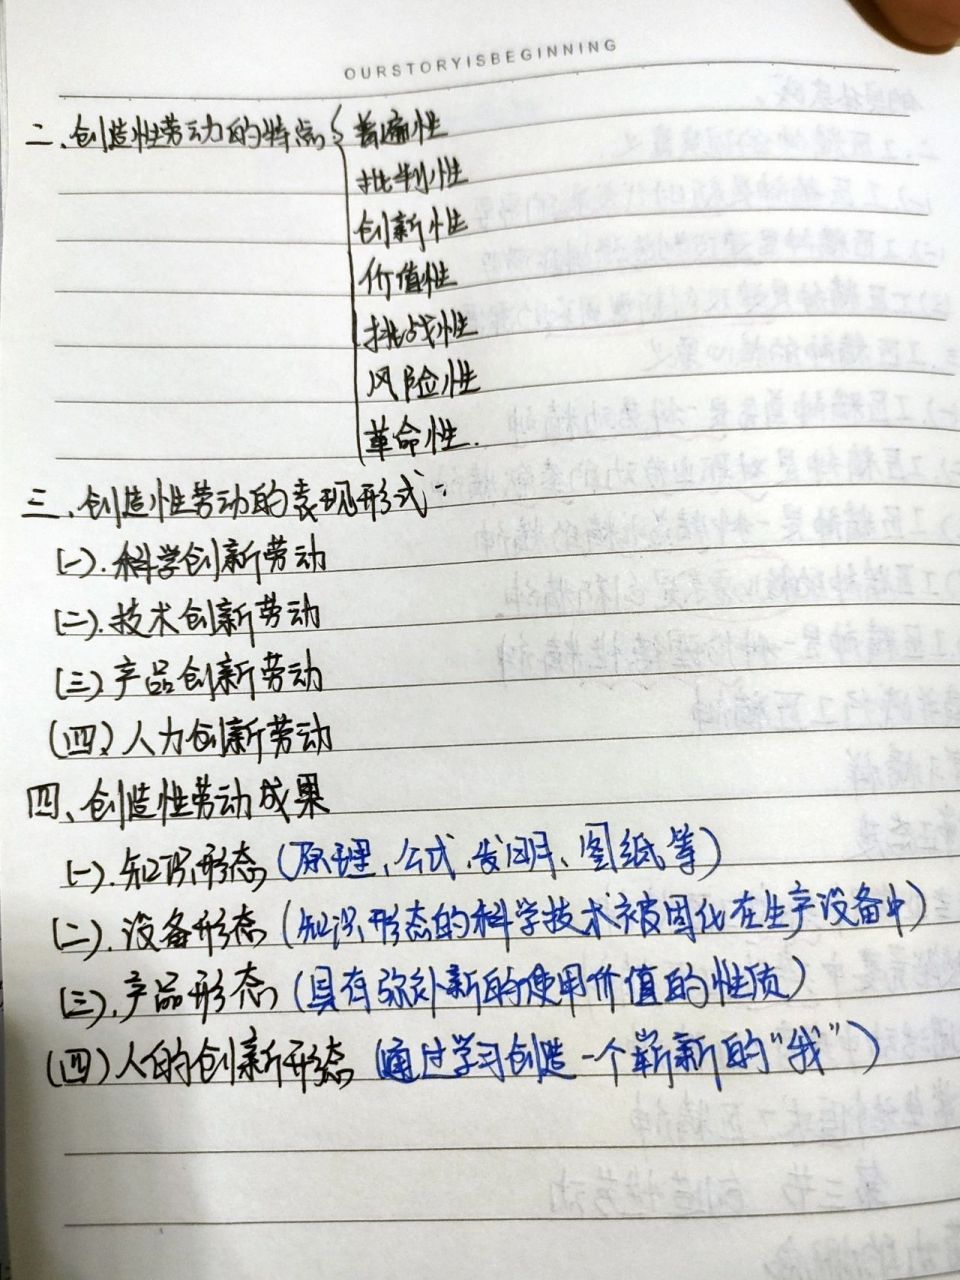 OURSTORYISBEGINNING
二、创造性劳动的特点{普遍性
批判性
创新性
价值性
挑战性
风险性
革命性.
三、创造性劳动的表现形式:
(一).科学创新劳动
(二).技术创新劳动
(三)产品创新劳动
(四)人力创新劳动
四、创造性劳动成果
(一).知识形态(原理、公式、发明、图纸等)
(二).设备形态(知识形态的科学技术被固化在生产设备中)
(三).产品形态(具有弥补新的使用价值的性质)
(四)人的创新形态(通过学习创造一个崭新的"我")